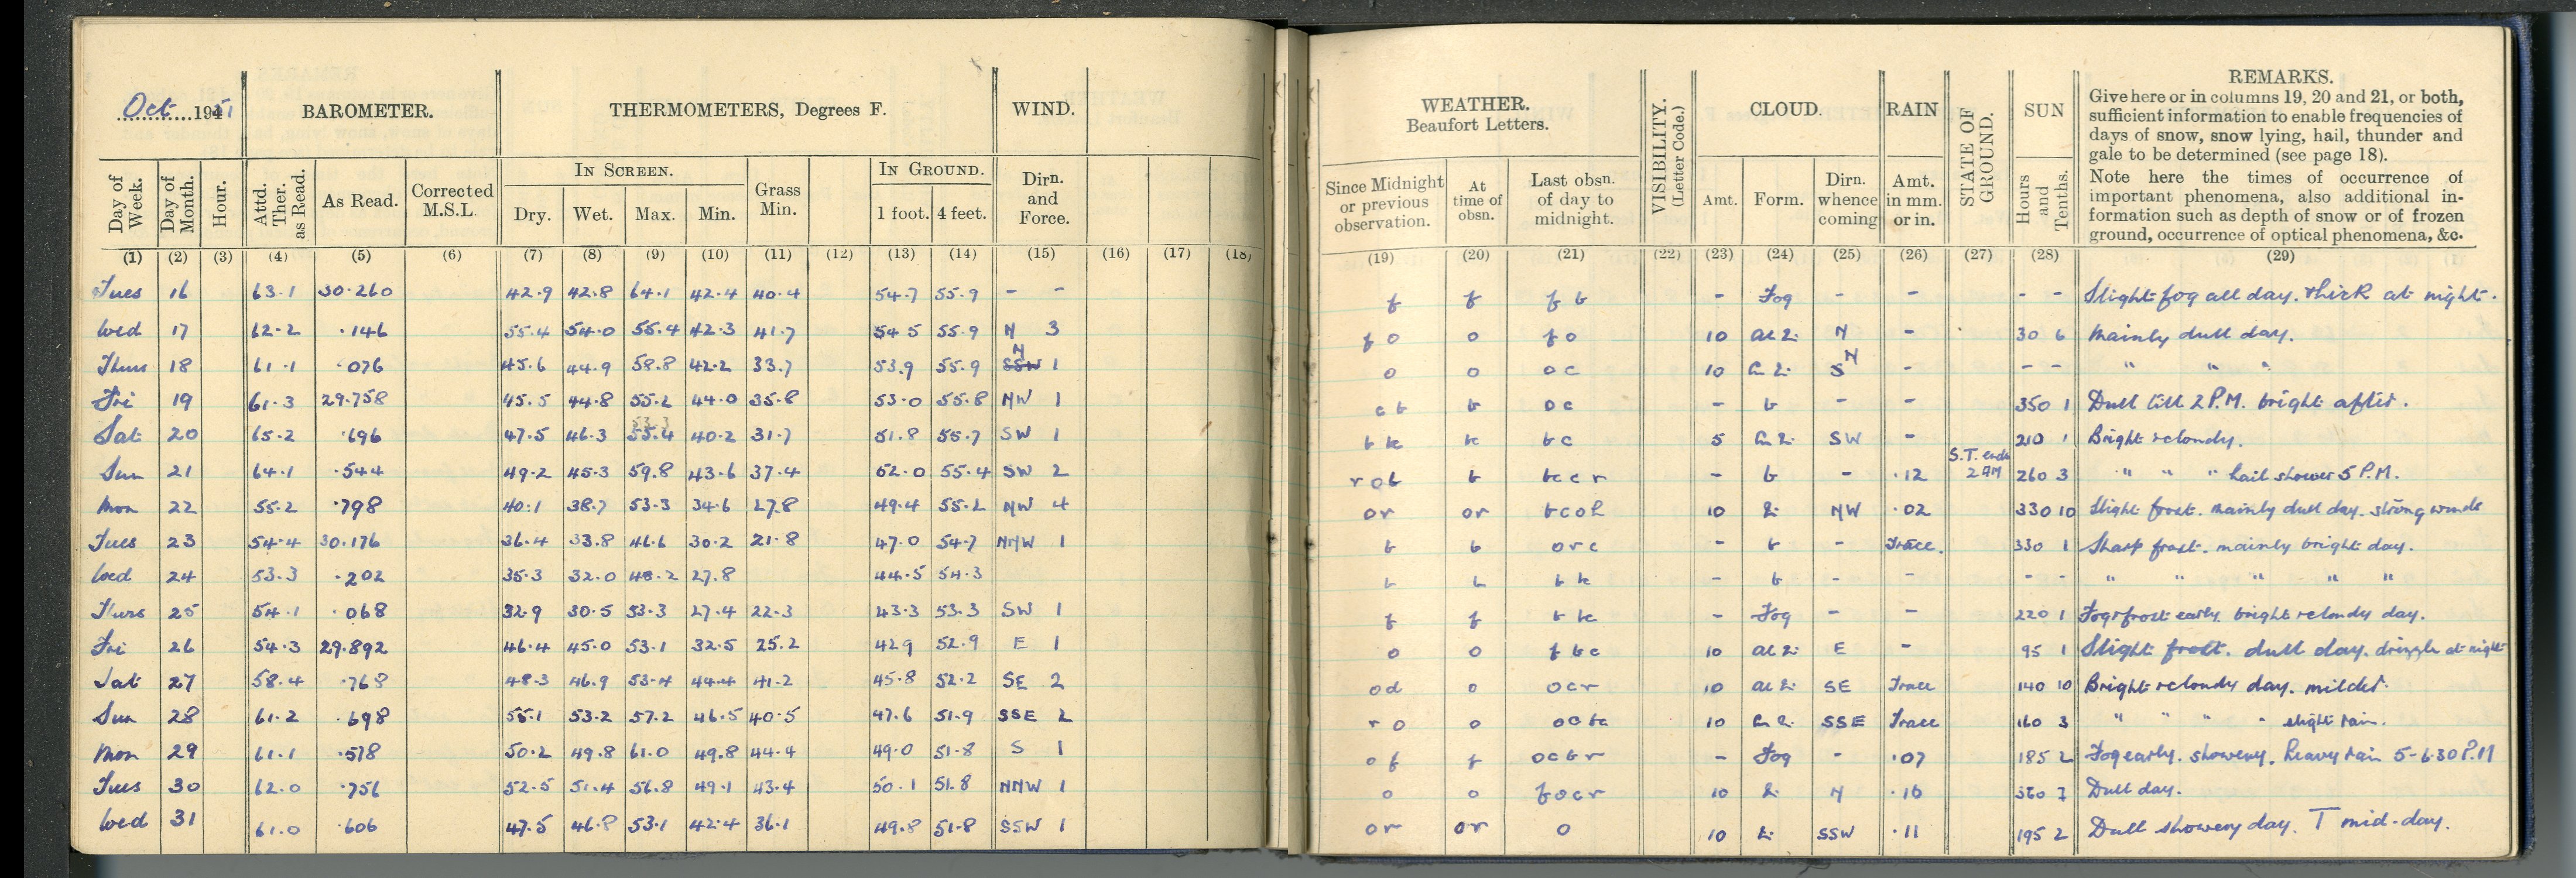 Oct 1951
BAROMETER. THERMOMETERS, Degrees F. WIND.
WEATHER. Beaufort Letters. VISIBILITY. (Letter Code.) CLOUD. RAIN STATE OF GROUND. SUN
REMARKS.
Give here or in columns 19, 20 and 21, or both,
sufficient information to enable frequencies of
days of snow, snow lying, hail, thunder and
gale to be determined (see page 18).
Note here the times of occurrence of
important phenomena, also additional in-
formation such as depth of snow or of frozen
ground, occurrence of optical phenomena, &c.
IN SCREEN. IN GROUND.
Day of Week. Day of Month. Hour. Attd. Ther. as Read. As Read. Corrected M.S.L. Dry. Wet. Max. Min. Grass Min. 1 foot. 4 feet. Dirn. and Force.
Since Midnight or previous observation. At time of obsn. Last obsn. of day to midnight. Amt. Form. Dirn. whence coming Amt. in mm. or in. Hours and Tenths.
(1) (2) (3) (4) (5) (6) (7) (8) (9) (10) (11) (12) (13) (14) (15) (16) (17) (18) (19) (20) (21) (22) (23) (24) (25) (26) (27) (28) (29)
Tues 16 63.1 30.260 42.9 42.8 64.1 42.4 40.4 54.7 55.9 - - f f f b - Fog - - - - Slight fog all day. thick at night.
Wed 17 62.2 .146 55.4 54.0 55.4 42.3 41.7 54.5 55.9 N 3 f o o f o 10 N - 30 6 Mainly dull day.
Thurs 18 61.1 .076 45.6 44.9 58.8 42.2 33.7 53.9 55.9 SSW N 1 o o o c 10 S N - - - " " "
Fri 19 61.3 29.758 45.5 44.8 55.2 44.0 35.8 53.0 55.8 NW 1 c b b o c - b - - 350 1 Dull till 2 P.M. bright after.
Sat 20 65.2 .696 47.5 46.3 53.3 55.4 40.2 31.7 51.8 55.7 SW 1 5 SW - 210 1 Bright & cloudy.
Sun 21 64.1 .544 49.2 45.3 59.8 43.6 37.4 52.0 55.4 SW 2 r o b b - b - .12 S.T. ends 2 AM 260 3 " " " hail shower 5 P.M.
Mon 22 55.2 .798 40.1 38.7 53.3 34.6 27.8 49.4 55.2 NW 4 o r o r 10 NW .02 330 10 Slight frost. mainly dull day. strong winds
Tues 23 54.4 30.176 36.4 33.8 46.6 30.2 21.8 47.0 54.7 NNW 1 b b o r c - b - Trace. 330 1 Sharp frost. mainly bright day.
Wed 24 53.3 .202 35.3 32.0 48.2 27.8 44.5 54.3 b b - b - - - - " " " " "
Thurs 25 54.1 .068 32.9 30.5 53.3 27.4 22.3 43.3 53.3 SW 1 f f - Fog - - 220 1 Fog & frost early. bright & cloudy day.
Fri 26 54.3 29.892 46.4 45.0 53.1 32.5 25.2 42.9 52.9 E 1 o o f b c 10 E - 95 1 Slight frost. dull day. drizzle at night
Sat 27 58.4 .768 48.3 46.9 53.4 44.4 41.2 45.8 52.2 SE 2 o d o o c r 10 SE Trace 140 10 Bright & cloudy day. milder.
Sun 28 61.2 .698 55.1 53.2 57.2 46.5 40.5 47.6 51.9 SSE 2 r o o 10 SSE Trace 160 3 " " " " slight rain.
Mon 29 61.1 .578 50.2 49.8 61.0 49.8 44.4 49.0 51.8 S 1 o f f o c b r - Fog - .07 185 2 Fog early. showery. heavy rain 5-6.30 P.M
Tues 30 62.0 .756 52.5 51.4 56.8 49.1 43.4 50.1 51.8 NNW 1 o o f o c r 10 N .16 360 7 Dull day.
Wed 31 61.0 .606 47.5 46.8 53.1 42.4 36.1 49.8 51.8 SSW 1 o r o r o 10 SSW .11 195 2 Dull showery day. T mid-day.